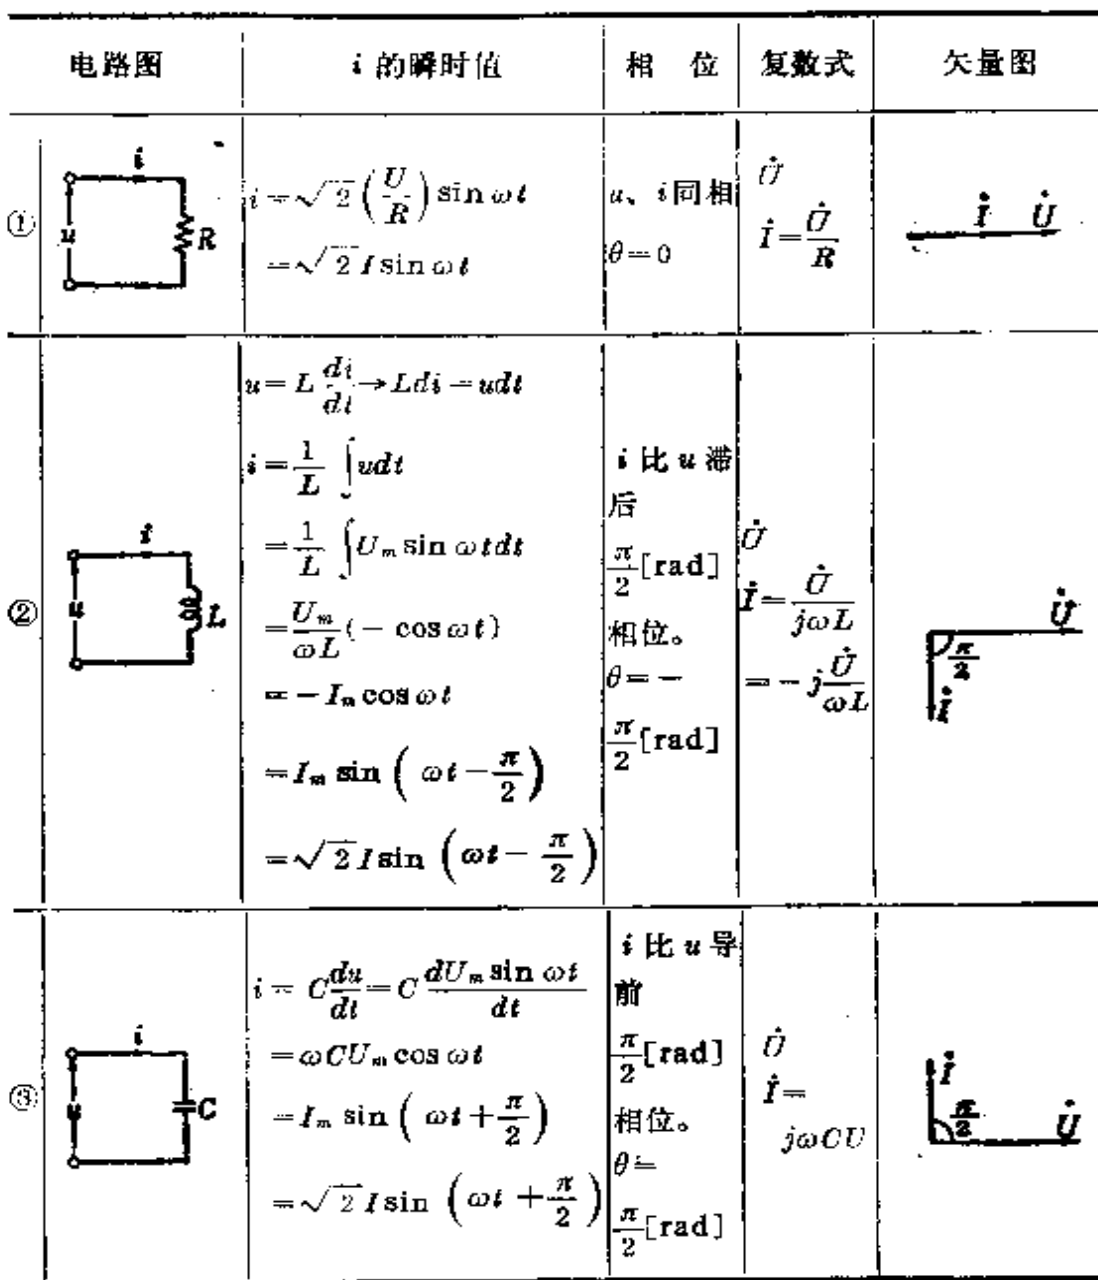 电路图 i 的瞬时值 相 位 复数式 矢量图
①
i
u
R
i=√2(U/R)sin ωt
=√2 I sin ωt
u、i同相
θ=0
U̇
İ=U̇/R
İ U̇
②
i
u
L
u=L di/dt→Ldi=udt
i=1/L ∫udt
=1/L ∫Uₘ sin ωtdt
=Uₘ/ωL(-cos ωt)
=-Iₘ cos ωt
=Iₘ sin (ωt-π/2)
=√2 I sin (ωt-π/2)
i 比 u 滞
后
π/2[rad]
相位。
θ=-
π/2[rad]
U̇
İ=U̇/jωL
=-jU̇/ωL
U̇
π/2
İ
③
i
u
C
i=C du/dt=C dUₘ sin ωt/dt
=ωCUₘ cos ωt
=Iₘ sin (ωt+π/2)
=√2 I sin (ωt+π/2)
i 比 u 导
前
π/2[rad]
相位。
θ=
π/2[rad]
U̇
İ=
jωCU
İ
π/2
U̇